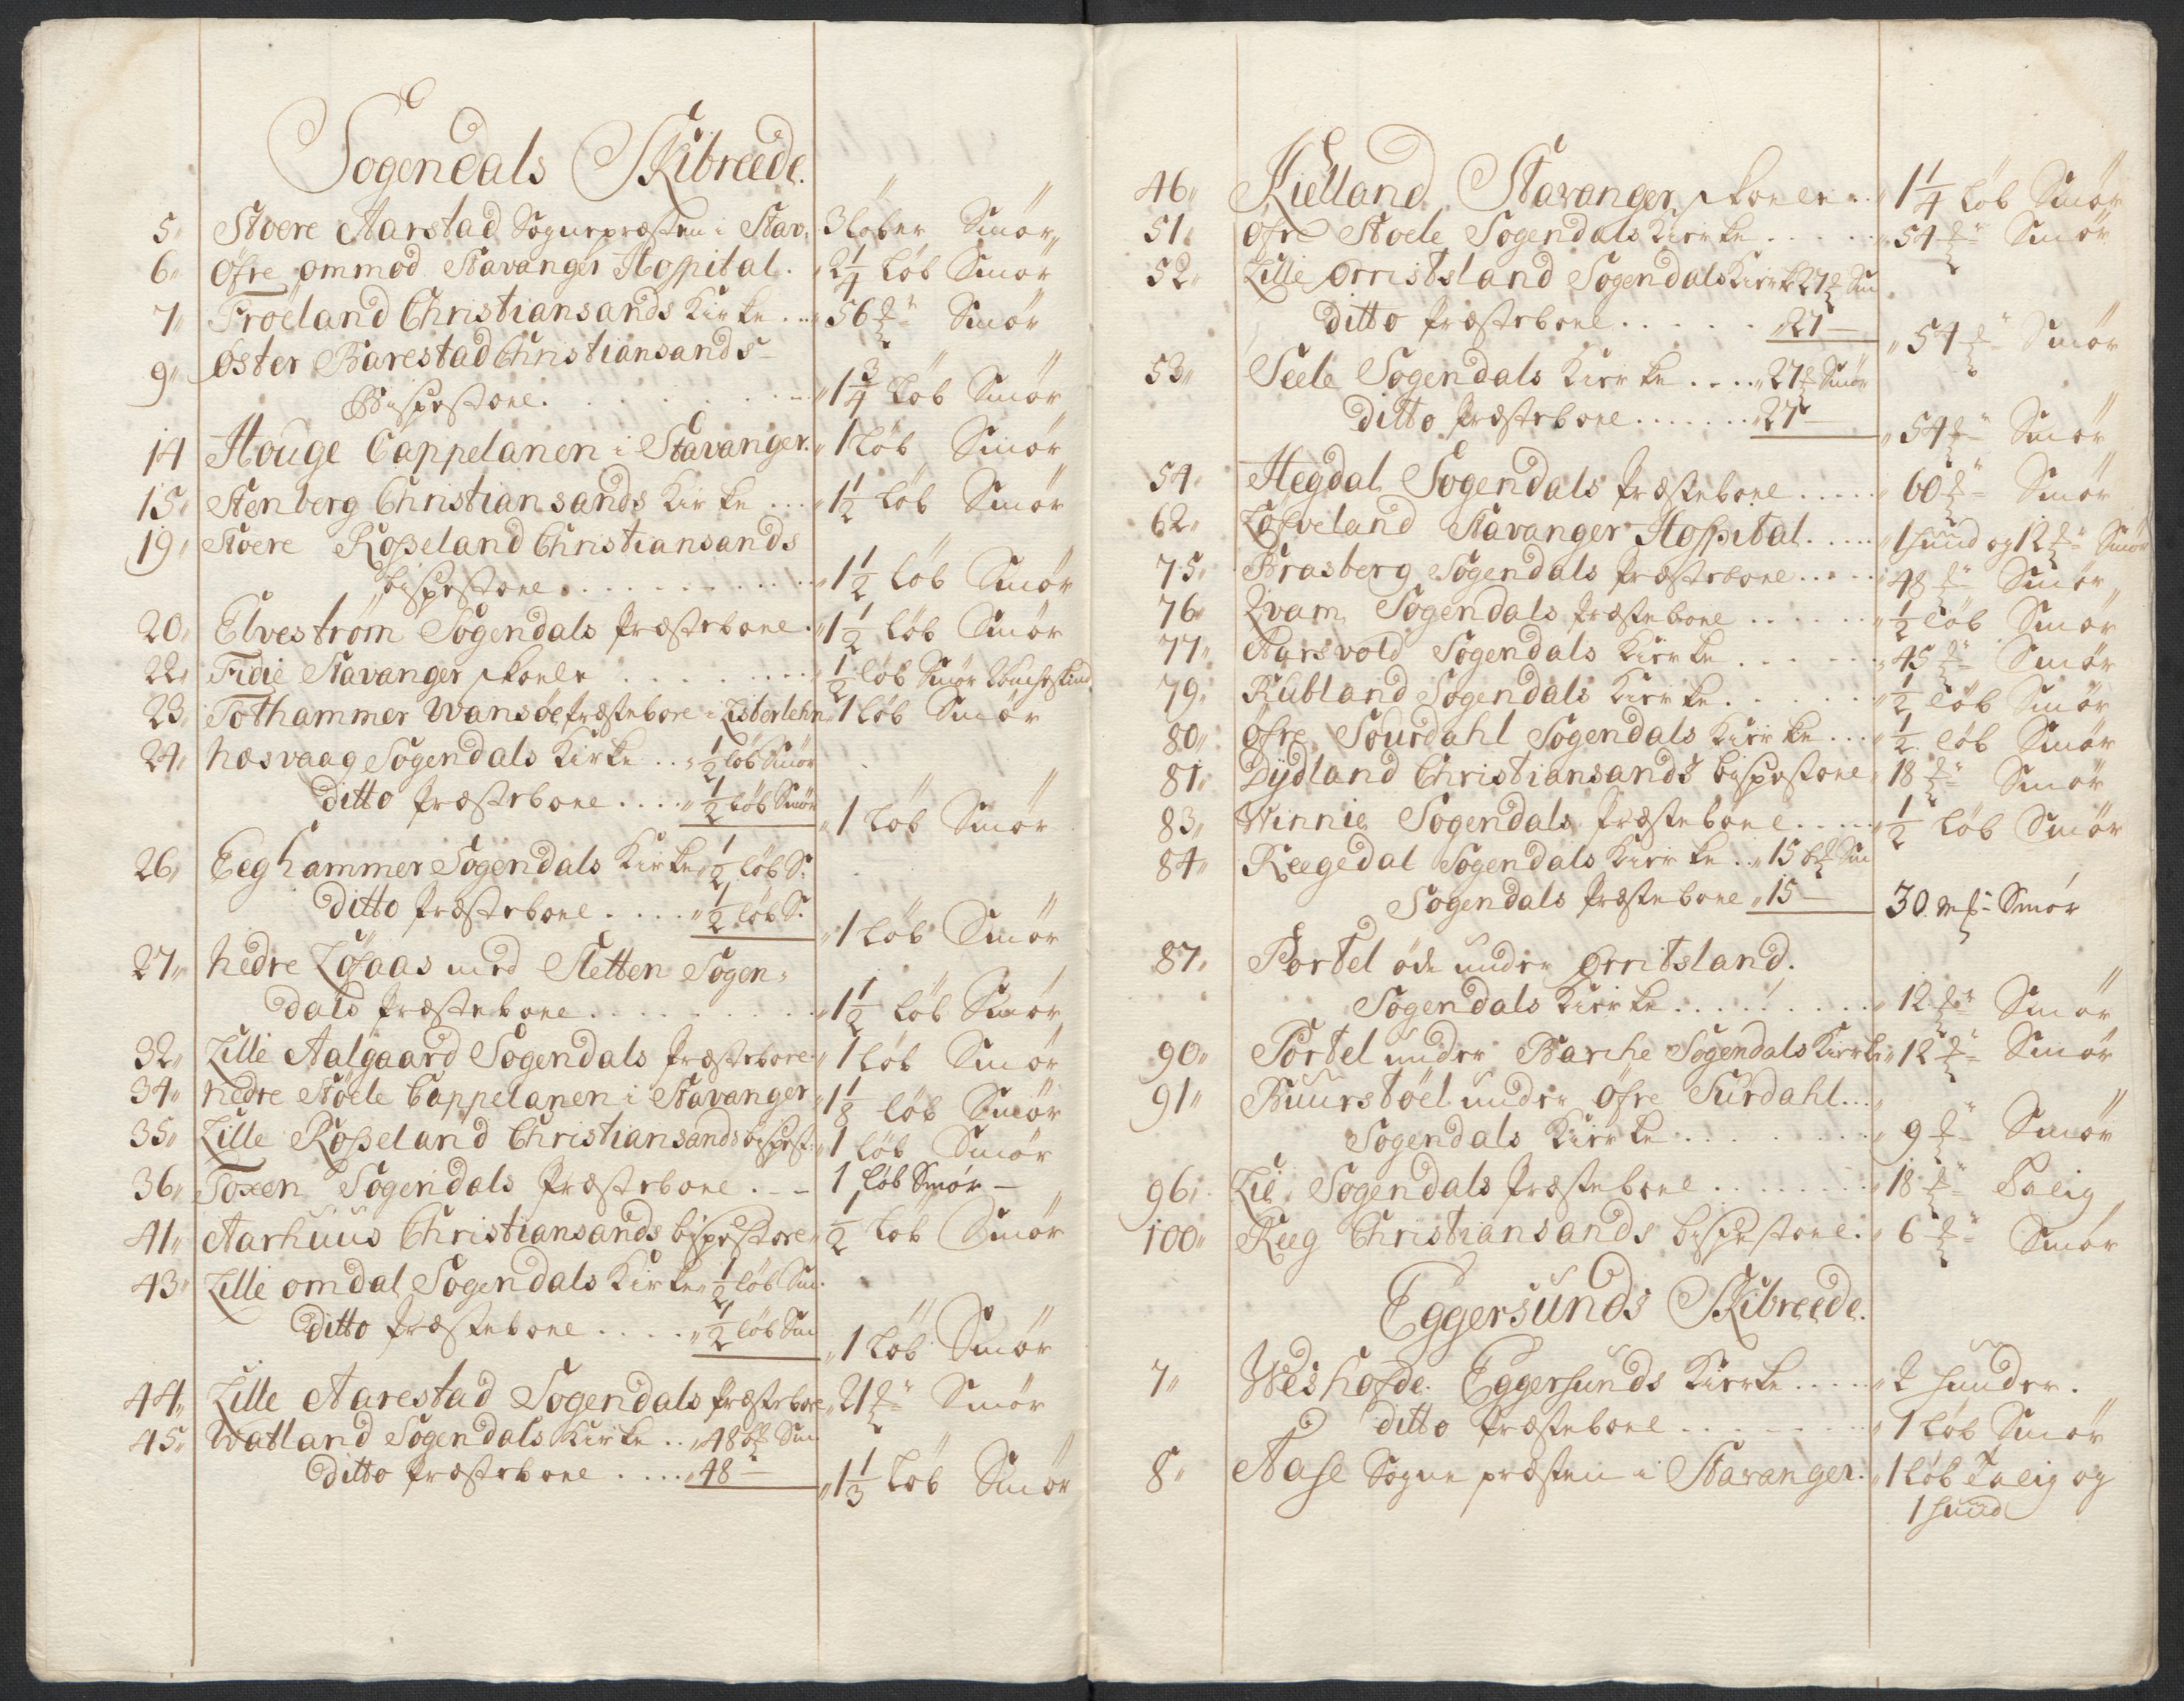 Sogendals Skibreede.
5" Stoere Aarstad Sognepræsten i Stav: 3 løber Smør
6" Øfre ommod Stavanger Hospital. " 2 1/4 løb Smør
7" Frøeland Christiansands Kirke ... " 56 ℔ Smør
9" Øster Barestad Christiansands
Bispestoel. " 1 3/4 løb Smør
14 Houge Cappelanen i Stavanger. " 1 løb Smør
15" Stenberg Christiansands Kirke ... " 1 1/2 løb Smør
19" Stoere Roßeland Christiansands
bispestoel " 1 1/2 løb Smør
20" Elvestrøm Sogendals Præsteboel. " 1 1/2 løb Smør
22" Fidie Stavanger skoele " 1/2 løb Smør
23" Tothammer Wansøe præsteboel i Listerlehn " 1 løb Smør
24" hæsvaag Sogendals Kirke .. " 1/2 løb Smør
ditto Præsteboel .... " 1/2 løb Smør
" 1 løb Smør
26" Eeghammer Sogendals Kirke " 1/2 løb S:
ditto Præsteboel .... " 1/2 løb S:
" 1 løb Smør
27" hedre Løfaas med Sletten Sogen-
dals Præsteboel " 1 1/2 løb Smør
32" Lille Aalgaard Sogendals Præsteboel " 1 løb Smør
34" hedre Støele Cappelanen i Stavanger " 1 1/8 løb Smør
35" Lille Roßeland Christiansands bispest: " 1 løb Smør
36" Foxen Sogendals Præsteboel . - - 1 løb Smør -
41" Aarhuus Christiansands bispestoel " 1/2 løb Smør
43" Lille omdal Sogendals Kirke " 1/2 løb Sm.
ditto Præsteboel .... " 1/2 løb Sm
" 1 løb Smør
44" Lille Aarestad Sogendals Præsteboel " 21 ℔ Smør
45" Watland Sogendals Kirke .. " 48 b℔ Sm
ditto Præsteboel .... " 48 —
" 1 1/3 løb Smør
46" Kielland Stavanger skoele .. " 1 1/4 løb Smør
51" Øfre Stoele Sogendals Kirke ..... " 54 ℔ Smør
52" Lille Orristsland Sogendals Kirke 27 ℔ Sm
ditto Præsteboel ..... " 27 —
" 54 ℔ Smør
53" Seele Sogendals Kirke .... " 27 ℔ Smør
ditto Præsteboel ....... " 27 —
" 54 ℔ Smør
54" Hegdal Sogendals Præsteboel ..... " 60 ℔ Smør
62" Løfveland Stavanger Hospital ..... " 1 huud og 12 ℔ Smør
75" Brasberg Sogendals Præsteboel ..... " 48 ℔ Smør
76" Qvam Sogendals Præsteboel ...... " 1/2 løb Smør
77" Aarsvold Sogendals Kirke ...... " 45 ℔ Smør
79" Rubland Sogendals Kirke ...... " 1/2 løb Smør
80" Øfre Sourdahl Sogendals Kirke ... " 1/2 løb Smør
81" Dydland Christiansands bispestoel " 18 ℔ Smør
83" Winnie Sogendals Præsteboel ..... " 1/2 løb Smør
84" Reegedal Sogendals Kirke .. " 15 b℔ Sm
Sogendals Præsteboel " 15 —
30. m℔ - Smør
87" Portel øde under Orritsland.
Sogendals Kirke ......... " 12 ℔ Smør
90" Portel under Barche Sogendals Kirke " 12 ℔ Smør
91" Buurstøel under Øfre Surdahl...
Sogendals Kirke ........ " 9 ℔ Smør
96" Lie Sogendals Præsteboel ........ " 18 ℔ Talig
100" Reeg Christiansands bispestoel. " 6 ℔ Smør
Eggersunds Skibreede.
7" Weshofde Eggersunds Kirke .... " 2 huuder.
ditto Præsteboel ...... " 1 løb Smør
8" Aase Sogne præsten i Stavanger. " 1 løb Talig og
1 huud